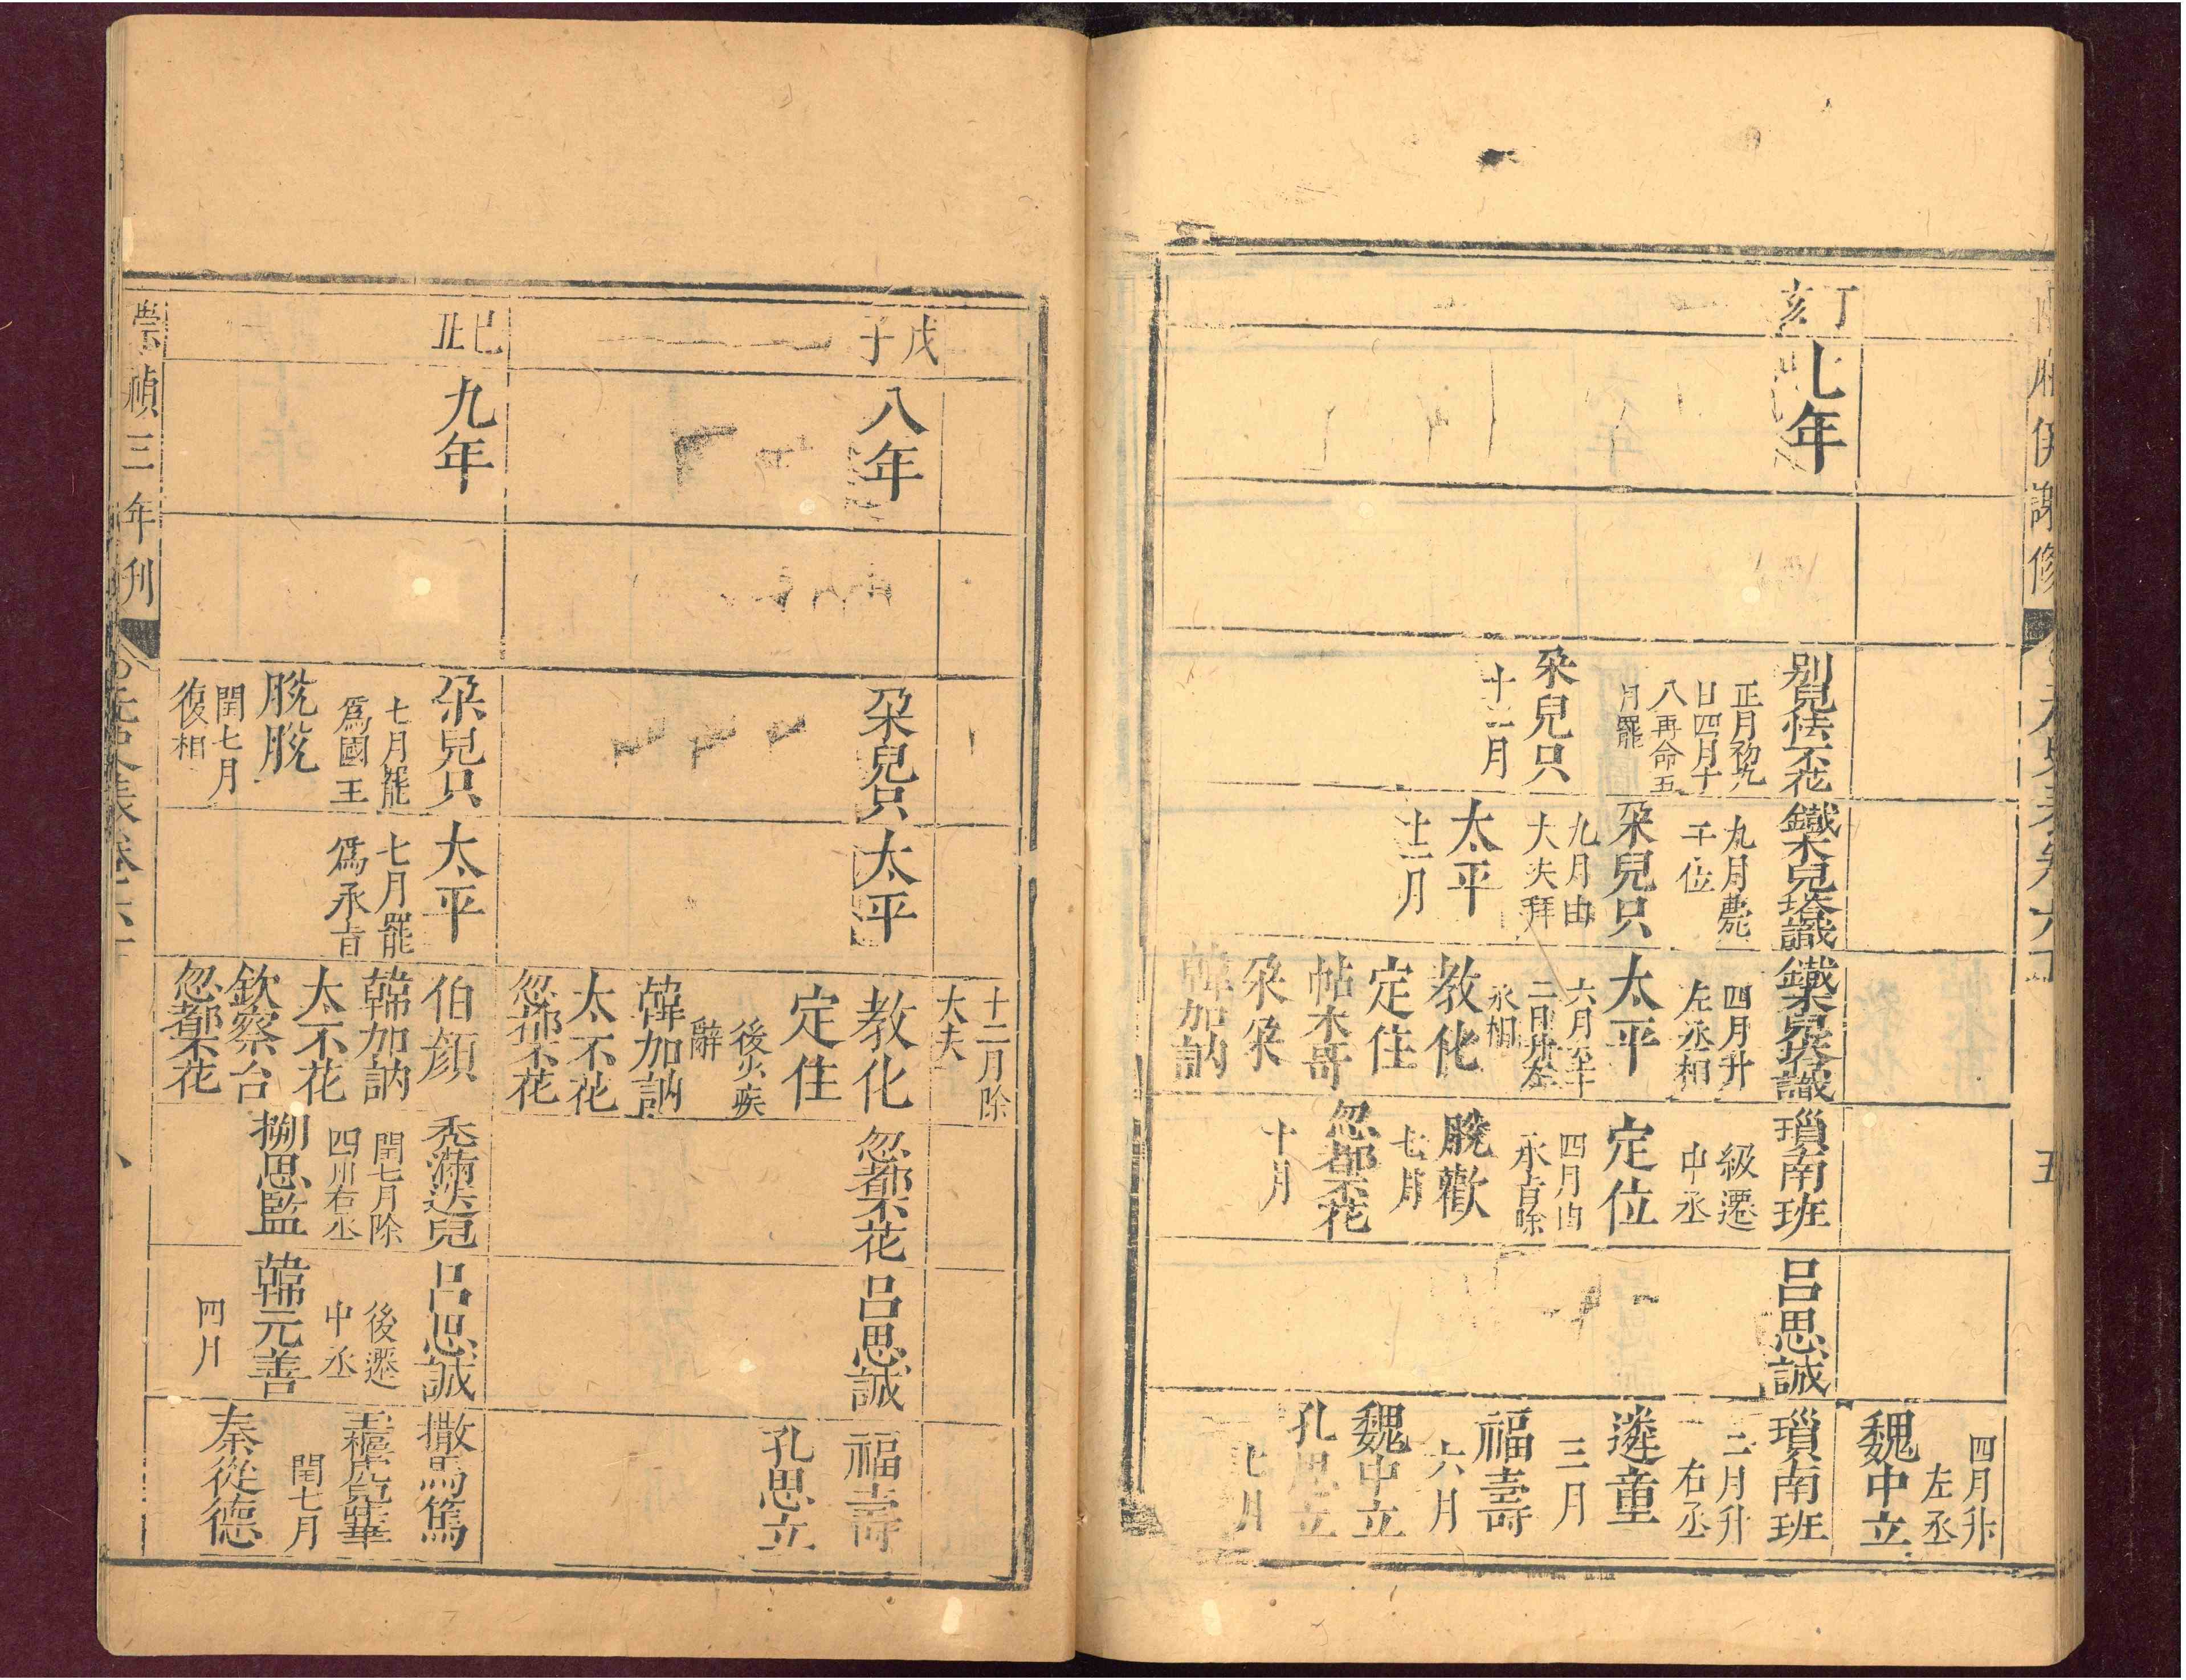 丁亥
七年
別兒怯不花
正月
廿四月十
八再命五
月罷
朶兒只
十二月
鐵木兒塔識
九月薨
于位
朶兒只
九月由
大夫拜
太平
十二月
鐵木兒塔識
四月升
左丞相
太平
六月
二日
丞相
教化
定住
帖木哥
朶朶
韓加訥
瑣南班
級遷
中丞
定位
四月由
承旨除
脫歡
七月
忽都不花
十月
呂思誠
四月升
左丞
魏中立
瑣南班
二月升
右丞
遴童
三月
福壽
六月
魏中立
孔思立
七月
五
十二月除
大夫
戊子
八年
朶兒只
太平
教化
定住
後以疾
辭
韓加訥
太不花
忽都不花
忽都不花
呂思誠
福壽
孔思立
己丑
九年
朶兒只
七月罷
爲國王
脫脫
閏七月
復相
太平
七月罷
爲承旨
伯顏
韓加訥
太不花
欽察台
忽都不花
禿滿迭兒
閏七月除
四川右丞
搠思監
呂思誠
後遷
中丞
韓元善
四月
撒馬篤
閏七月
秦從德
崇禎三年刊